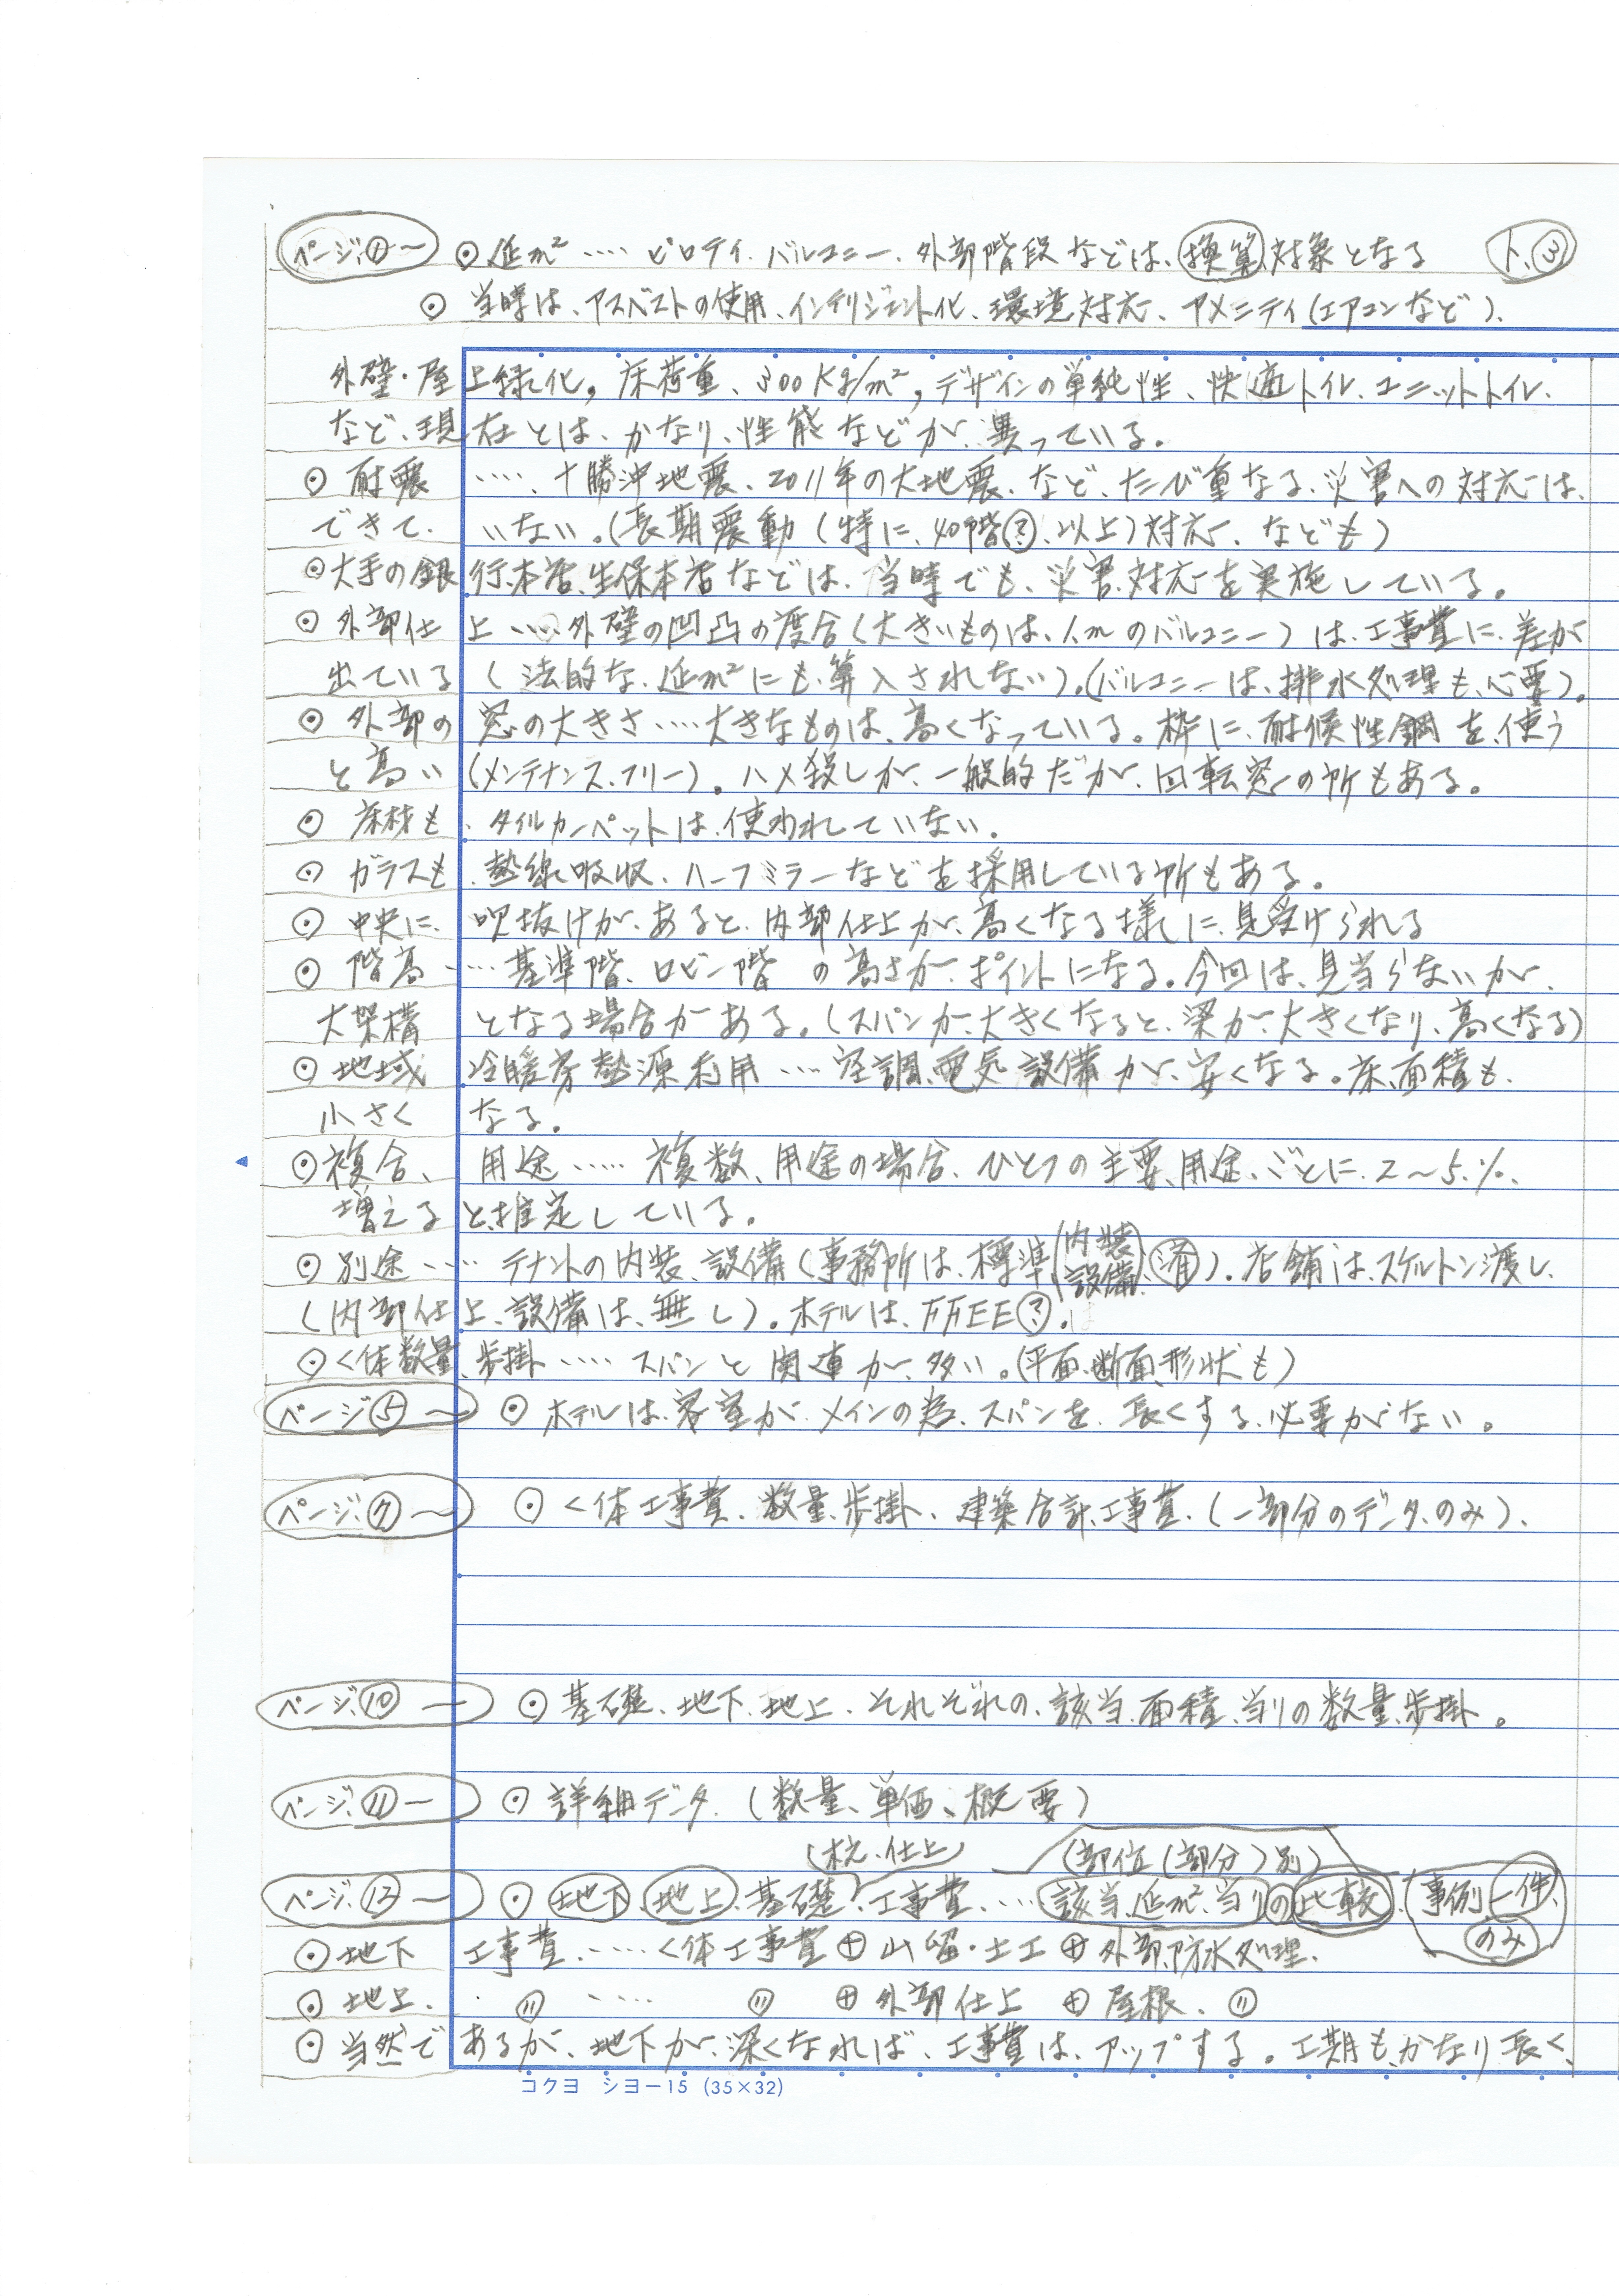 ページ④〜 ⊙ 延m² ‥‥ ピロティ、バルコニー、外部階段などは、換算対象となる ト、③
⊙ 当時は、アスベストの使用、インテリジェント化、環境対応、アメニティ(エアコンなど)、
外壁・屋上緑化，床荷重、300Kg/m²，デザインの単純性、快適トイレ、ユニットトイレ、
など、現在とは、かなり、性能などが、異っている。
⊙ 耐震 ‥‥、十勝沖地震、2011年の大地震、など、たび重なる、災害への対応は、
できて、いない。(長期震動(特に、40階?、以上)対応、なども)
⊙大手の銀行、本店、生保本店などは、当時でも、災害、対応を実施している。
⊙ 外部仕上‥‥外壁の凹凸の度合(大きいものは、1.mのバルコニー)は、工事費に、差が
出ている (法的な、延m²にも、算入されない)。(バルコニーは、排水処理も、必要)。
⊙ 外部の窓の大きさ‥‥大きなものは、高くなっている。枠に、耐候性鋼を、使う
と高い(メンテナンス、フリー)。ハメ殺しが、一般的だが、回転窓の所もある。
⊙ 床材も、タイルカーペットは、使われていない。
⊙ ガラスも、熱線吸収、ハーフミラーなどを採用している所もある。
⊙ 中央に、吹抜けが、あると、内部仕上が、高くなる様に、見受けられる
⊙ 階高‥‥基準階、ロビー階 の高さが、ポイントになる。今回は、見当らないが、
大架構 となる場合がある。(スパンが、大きくなると、梁が、大きくなり、高くなる)
⊙ 地域 冷暖房熱源利用‥‥空調、電気設備が、安くなる。床、面積も、
小さく なる。
⊙複合、用途‥‥ 複数、用途の場合、ひとつの主要、用途、ごとに、2〜5.%、
増えると、推定している。
⊙ 別途‥‥ テナントの内装、設備(事務所は、標準(内装 設備)済)。店舗は、スケルトン渡し、
(内部仕上、設備は、無し)。ホテルは、FFEE?。
⊙く体数量、歩掛‥‥ スパンと 関連が、多い。(平面、断面、形状も)
ページ⑤〜 ⊙ ホテルは、客室が、メインの為、スパンを、長くする、必要がない。
ページ、⑦〜 ⊙ く体工事費、数量、歩掛、建築合計、工事費、(一部分のデータ、のみ)、
ページ、⑩ー ⊙ 基礎、地下、地上、それぞれの、該当、面積、当りの数量、歩掛。
ページ、⑪ー ⊙ 詳細データ、(数量、単価、概要)
(杭、仕上) (部位(部分)別)
ページ、⑫ー ⊙ 地下、地上、基礎、工事費‥‥該当、延m²、当りの比較、(事例一件、
のみ)
⊙地下 工事費‥‥く体工事費⊕山留・土工⊕外部、防水処理、
⊙ 地上、 〃 ‥‥ 〃 ⊕外部仕上 ⊕屋根、〃
⊙ 当然であるが、地下が、深くなれば、工事費は、アップする。工期も、かなり長く、
コクヨ シヨー15 (35×32)